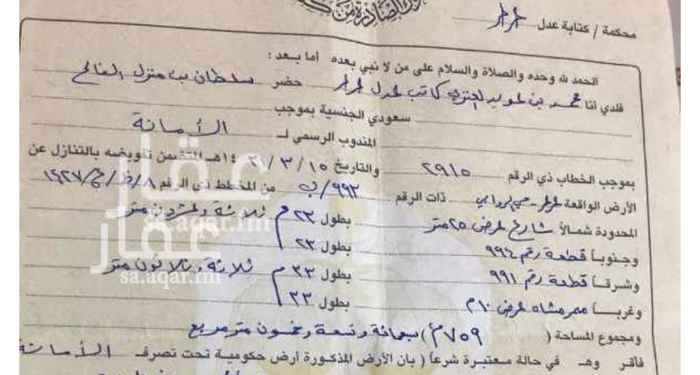 محكمة / كتابة عدل
الحمد لله وحده والصلاة والسلام على من لا نبي بعده أما بعد :
فلدي أنا محمد بن كاتب عدل حضر سلطان بن
سعودي الجنسية بموجب
المندوب الرسمي لـ الأمانة
بموجب الخطاب ذي الرقم ٢٩١٥ والتاريخ ١٥ / ٣ / ٢١ ١٤هـ المتضمن تفويضه بالتنازل عن
الأرض الواقعة ذات الرقم ٩٩٣/ب من المخطط ذي الرقم
المحدودة شمالاً شارع عرض ٢٥ متر بطول ٢٣ م ثلاثة وعشرون متر
وجنوباً قطعة رقم ٩٩٤ بطول ٢٣
وشرقاً قطعة رقم ٩٩١ بطول ٣٣ م ثلاثة وثلاثون متر
وغرباً ممر مشاه عرض ١٠ م بطول ٣٣
ومجموع المساحة ( ٧٥٩ م ) سبعمائة وتسعة وخمسون متر مربع
فأقر وهـ في حالة معتبرة شرعاً ( بأن الأرض المذكورة أرض حكومية تحت تصرف الأمانة
عقار
sa.aqar.fm
عقار
sa.aqar.fm